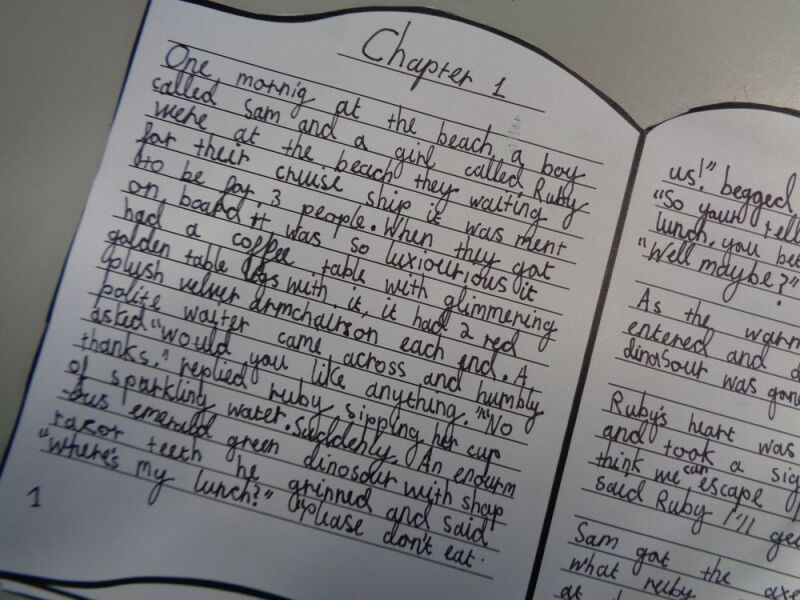 Chapter 1
One mornig at the beach, a boy
called Sam and a girl called Ruby
were at the beach they waiting
for their cruise ship it was ment
to be for 3 people. When they got
on board it was so luxiourious it
had a coffee table with glimmering
golden table legs with it, it had 2 red
plush velver armchairs on each end. A
polite waiter came across and humbly
asked "would you like anything. "No
thanks." replied ruby, sipping her cup
of sparkling water. Suddenly, An enourm
ous emerald green dinosour with shap
rasor teeth he grinned and said
"where's my lunch?" "please don't eat
1
us!" begged
"So your tell
lunch, you bet
"Well maybe?"
As the warm
entered and d
dinasour was gone
Ruby's heart was
and took a sig
think we can escape
said Ruby I'll ge
Sam got the axe
what ruby